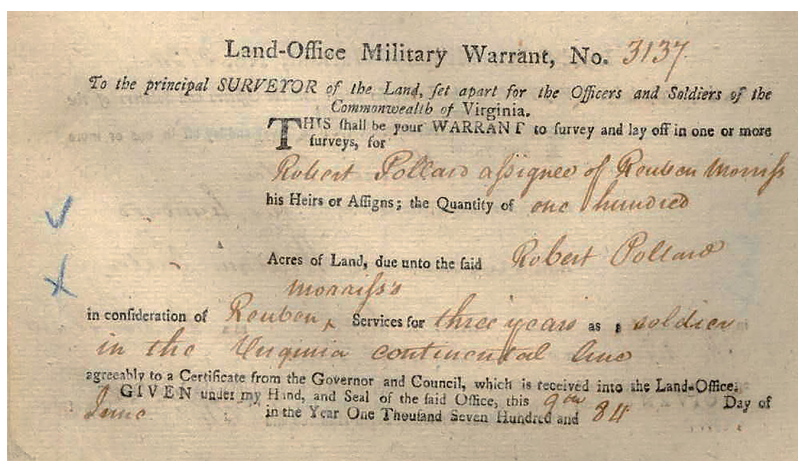 Land-Office Military Warrant, No. 3137
To the principal SURVEYOR of the Land, ſet apart for the Officers and Soldiers of the
Commonwealth of Virginia.
THIS ſhall be your WARRANT to ſurvey and lay off in one or more
ſurveys, for
Robert Pollard aſsignee of Reuben Morriſs
his Heirs or Aſſigns; the Quantity of one hundred
Acres of Land, due unto the ſaid Robert Pollard
Morriſs's
in conſideration of Reuben Services for three years as a soldier
in the Virginia continental line
agreeably to a Certificate from the Governor and Council, which is received into the Land-Office.
GIVEN under my Hand, and Seal of the ſaid Office, this 9th Day of
June in the Year One Thouſand Seven Hundred and 84